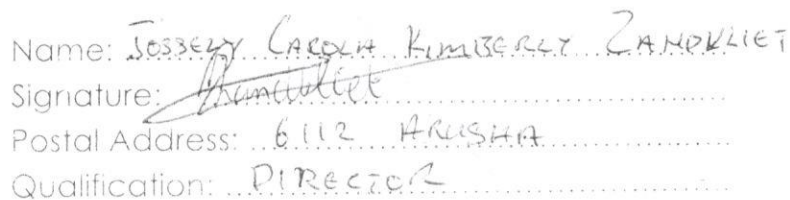 Name: JOSBELY CAROLIA KIMBERLY ZANDVLIET
Signature:
Postal Address: 6112 ARUSHA
Qualification: DIRECTOR